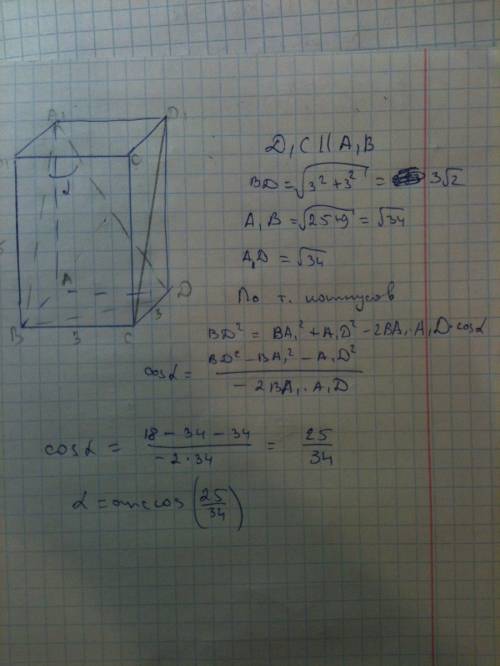 A₁
D₁
C
α
A
D
B
3
C
3
D₁C || A₁B
BD = √3² + 3² = 3√2
A₁B = √25+9 = √34
A₁D = √34
По т. косинусов
BD² = BA₁² + A₁D² - 2BA₁ · A₁D · cosα
cosα = BD² - BA₁² - A₁D² / - 2BA₁ · A₁D
cosα = 18 - 34 - 34 / - 2 · 34 = 25 / 34
α = arccos (25/34)